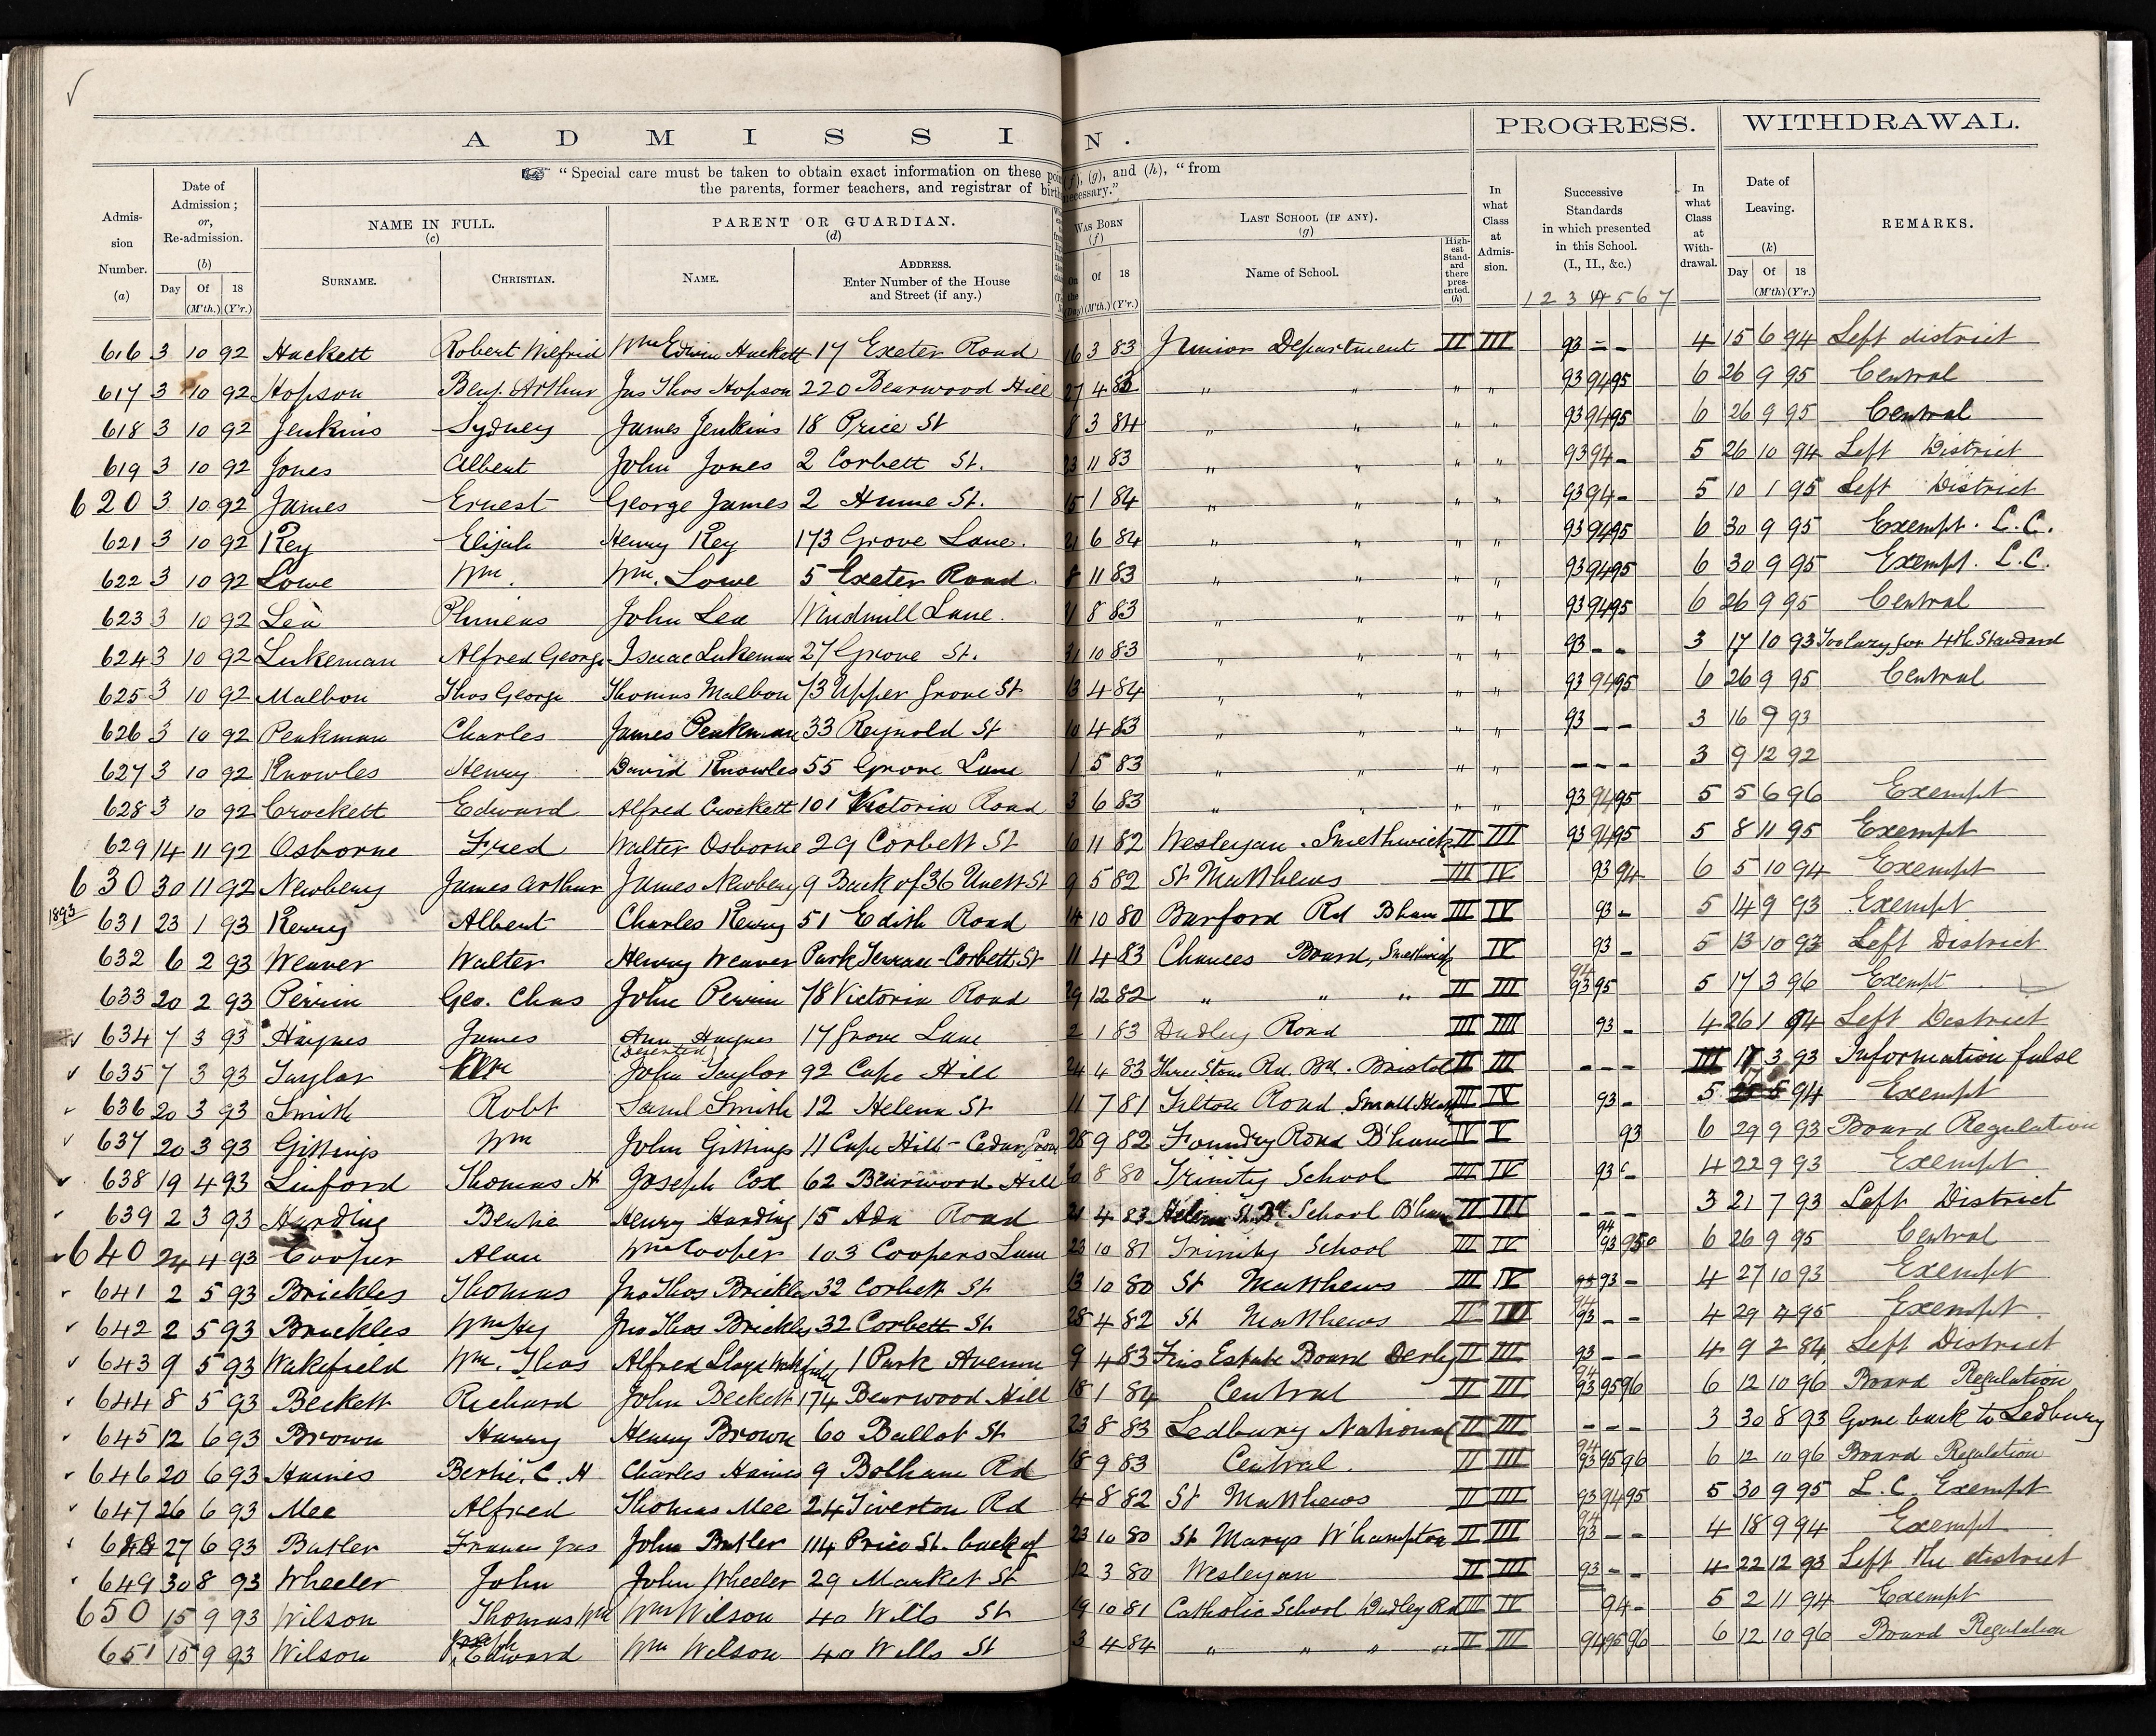 A D M I S S I N .
PROGRESS.
WITHDRAWAL.
"Special care must be taken to obtain exact information on these (f), (g), and (h), "from
the parents, former teachers, and registrar of necessary."
Admission Number. (a)
Date of Admission; or, Re-admission. (b)
Day Of (M'th.) 18 (Y'r.)
NAME IN FULL. (c)
SURNAME. CHRISTIAN.
PARENT OR GUARDIAN. (d)
NAME.
ADDRESS. Enter Number of the House and Street (if any.)
WAS BORN (f)
Of (M'th.) 18 (Y'r.)
LAST SCHOOL (IF ANY). (g)
Name of School.
Highest Standard there presented. (h)
In what Class at Admission.
Successive Standards in which presented in this School. (I., II., &c.)
1 2 3 4 5 6 7
In what Class at Withdrawal.
Date of Leaving. (k)
Day Of (M'th.) 18 (Y'r.)
REMARKS.
616 3 10 92 Hackett Robert Wilfrid Wm Edwin Hackett 17 Exeter Road 16 3 83 Junior Department II III 93 - - 4 15 6 94 Left district
617 3 10 92 Hopson Benj. Arthur Jas Thos Hopson 220 Bearwood Hill 27 4 83 " " " " 93 94 95 6 26 9 95 Central
618 3 10 92 Jenkins Sydney James Jenkins 18 Price St 8 3 84 " " " " 93 94 95 6 26 9 95 Central
619 3 10 92 Jones Albert John Jones 2 Corbett St. 23 11 83 " " " " 93 94 - 5 26 10 94 Left District
620 3 10 92 James Ernest George James 2 Hume St. 15 1 84 " " " " 93 94 - 5 10 1 95 Left District
621 3 10 92 Key Elijah Henry Key 173 Grove Lane. 21 6 84 " " " " 93 94 95 6 30 9 95 Exempt. L.C.
622 3 10 92 Lowe Wm. Wm. Lowe 5 Exeter Road. 8 11 83 " " " " 93 94 95 6 30 9 95 Exempt. L.C.
623 3 10 92 Lea Phineas John Lea Windmill Lane. 8 83 " " " " 93 94 95 6 26 9 95 Central
624 3 10 92 Lukeman Alfred George Isaac Lukeman 27 Grove St. 10 83 " " " " 93 - - 3 17 10 93 Too lazy for 4th Standard
625 3 10 92 Malbon Thos George Thomas Malbon 73 Upper Grove St 13 4 84 " " " " 93 94 95 6 26 9 95 Central
626 3 10 92 Peakman Charles James Peakman 33 Reynold St 10 4 83 " " " " 93 - - 3 16 9 93
627 3 10 92 Knowles Henry David Knowles 55 Grove Lane 1 5 83 " " " " - - - 3 9 12 92
628 3 10 92 Crockett Edward Alfred Crockett 101 Victoria Road 3 6 83 " " " " 93 94 95 5 5 6 96 Exempt
629 14 11 92 Osborne Fred Walter Osborne 29 Corbett St 11 82 Wesleyan. Smethwick II III 93 94 95 5 8 11 95 Exempt
630 30 11 92 Newbery James Arthur James Newbery 9 Back of 36 Unett St 9 5 82 St Matthews III IV 93 94 6 5 10 94 Exempt
1893
631 23 1 93 Kerry Albert Charles Kerry 51 Edith Road 14 10 80 Barford Rd Bham III IV 93 - 5 14 9 93 Exempt
632 6 2 93 Weaver Walter Henry Weaver Park Terrace - Corbett St 11 4 83 Chances Board, Smethwick IV 93 - 5 13 10 93 Left District
633 20 2 93 Perrin Geo. Chas John Perrin 78 Victoria Road 29 12 82 " " " II III 94 93 95 5 17 3 96 Exempt
634 7 3 93 Haynes James Ann Haynes 17 Grove Lane 2 1 83 Dudley Road III IIII 93 - 4 26 1 94 Left District
635 7 3 93 Taylor Wm (Deserted) John Taylor 92 Cape Hill 24 4 83 Bristol II III - - - III 17 3 93 Information false
636 20 3 93 Smith Robt Saml Smith 12 Helena St 11 7 81 Tilton Road Small Heath III IV 93 - 5 5 94 Exempt
637 20 3 93 Gittings Wm John Gittings 11 Cape Hill - Cedar Grove 28 9 82 Foundry Road B'ham IV V 93 6 29 9 93 Board Regulation
638 19 4 93 Linford Thomas H Joseph Cox 62 Bearwood Hill 8 80 Trinity School III IV 93 4 22 9 93 Exempt
639 2 3 93 Harding Bertie Henry Harding 15 Ada Road 21 4 83 Helena St. Bd School B'ham II III - - - 3 21 7 93 Left District
640 24 4 93 Cooper Alan Wm Cooper 103 Coopers Lane 23 10 81 Trinity School III IV 94 93 95 6 26 9 95 Central
641 2 5 93 Brickles Thomas Jno Thos Brickles 32 Corbett St 13 10 80 St Matthews III IV 93 - 4 27 10 93 Exempt
642 2 5 93 Brickles Wm Hy Jno Thos Brickles 32 Corbett St 28 4 82 St Matthews II III 94 93 - - 4 29 4 95 Exempt
643 9 5 93 Wakefield Wm. Thos Alfred Lloyd Wakefield 1 Park Avenue 9 4 83 Estate Board Derby II III 93 - - 4 9 2 84 Left District
644 8 5 93 Beckett Richard John Beckett 174 Bearwood Hill 18 1 84 Central II III 94 93 95 96 6 12 10 96 Board Regulation
645 12 6 93 Brown Harry Henry Brown 60 Ballot St 23 8 83 Ledbury National II III - - - 3 30 8 93 Gone back to Ledbury
646 20 6 93 Haines Bertie. C. H Charles Haines 9 Bolham Rd 18 9 83 Central. II III 94 93 95 96 6 12 10 96 Board Regulation
647 26 6 93 Mee Alfred Thomas Mee 24 Tiverton Rd 4 8 82 St Matthews II III 93 94 95 5 30 9 95 L. C. Exempt
648 27 6 93 Butler Francis Jas John Butler 114 Price St. back of 23 10 80 St Marys W'hampton II III 94 93 - - 4 18 9 94 Exempt
649 30 8 93 Wheeler John John Wheeler 29 Market St 12 3 80 Wesleyan II III 93 - - 4 22 12 93 Left the district
650 15 9 93 Wilson Thomas Wm Wm Wilson 40 Wills St 19 10 81 Catholic School Dudley Rd III IV 94 - 5 2 11 94 Exempt
651 15 9 93 Wilson Joseph Edward Wm Wilson 40 Wills St 3 4 84 " " " " II III 94 95 96 6 12 10 96 Board Regulation